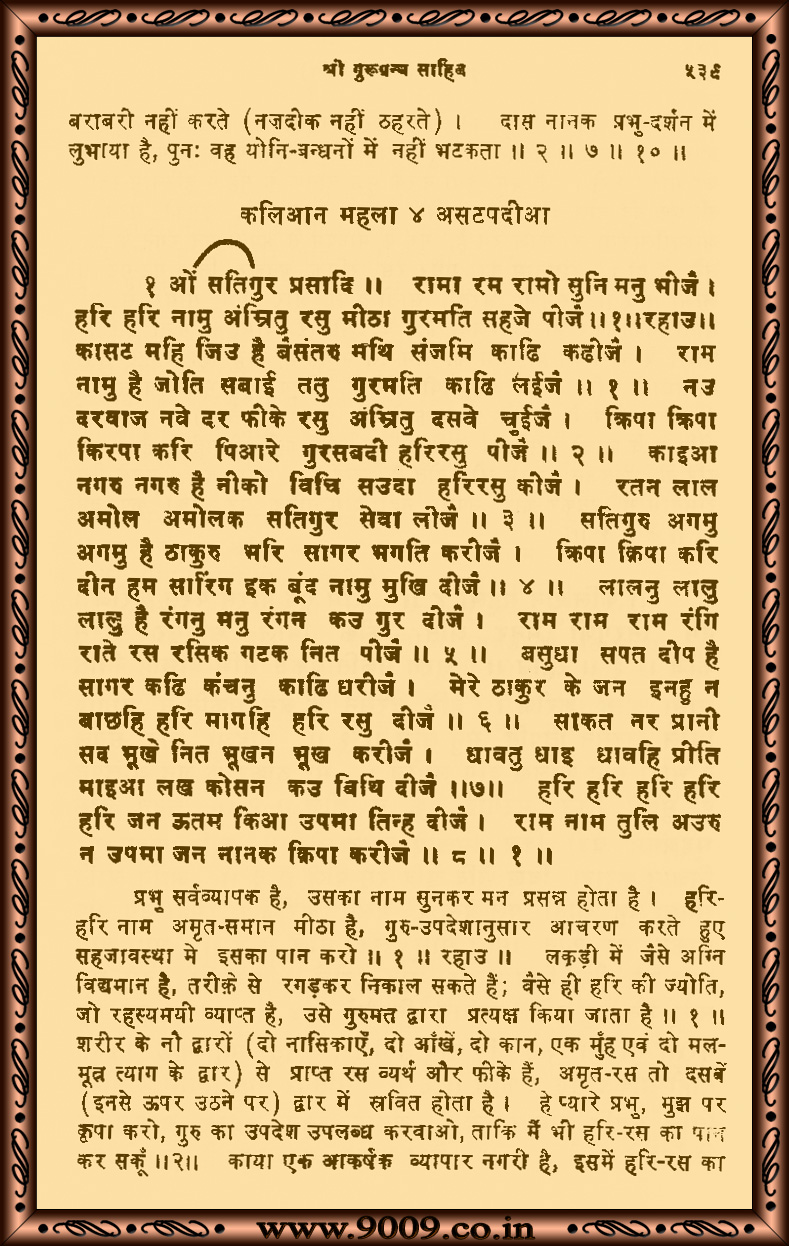 श्री गुरूग्रन्थ साहिब ५३९
बराबरी नहीं करते (नज़दीक नहीं ठहरते) । दास नानक प्रभु-दर्शन में
लुभाया है, पुनः वह योनि-बन्धनों में नहीं भटकता ॥ २ ॥ ७ ॥ १० ॥
कलिआन महला ४ असटपदीआ
१ ओं सतिगुर प्रसादि ॥ रामा रम रामो सुनि मनु भीजै ।
हरि हरि नामु अंम्रितु रसु मीठा गुरमति सहजे पीजै ॥ १ ॥ रहाउ ॥
कासट महि जिउ है बैसंतरु मथि संजमि काढि कढीजै । राम
नामु है जोति सबाई ततु गुरमति काढि लईजै ॥ १ ॥ नउ
दरवाज नवे दर फीके रसु अंम्रितु दसवे चुईजै । क्रिपा क्रिपा
किरपा करि पिआरे गुरसबदी हरिरसु पीजै ॥ २ ॥ काइआ
नगरु नगरु है नीको विचि सउदा हरिरसु कीजै । रतन लाल
अमोल अमोलक सतिगुर सेवा लीजै ॥ ३ ॥ सतिगुरु अगमु
अगमु है ठाकुरु भरि सागर भगति करीजै । क्रिपा क्रिपा करि
दीन हम सारिंग इक बूंद नामु मुखि दीजै ॥ ४ ॥ लालनु लालु
लालु है रंगनु मनु रंगन कउ गुर दीजै । राम राम राम रंगि
राते रस रसिक गटक नित पीजै ॥ ५ ॥ बसुधा सपत दीप है
सागर कढि कंचनु काढि धरीजै । मेरे ठाकुर के जन इनहु न
बाछहि हरि मागहि हरि रसु दीजै ॥ ६ ॥ साकत नर प्रानी
सद भूखे नित भूखन भूख करीजै । धावतु धाइ धावहि प्रीति
माइआ लख कोसन कउ बिथि दीजै ॥७॥ हरि हरि हरि हरि
हरि जन ऊतम किआ उपमा तिन्ह दीजै । राम नाम तुलि अउरु
न उपमा जन नानक क्रिपा करीजै ॥ ८ ॥ १ ॥
प्रभु सर्वव्यापक है, उसका नाम सुनकर मन प्रसन्न होता है । हरि-
हरि नाम अमृत-समान मीठा है, गुरु-उपदेशानुसार आचरण करते हुए
सहजावस्था मे इसका पान करो ॥ १ ॥ रहाउ ॥ लकड़ी में जैसे अग्नि
विद्यमान है, तरीक़े से रगड़कर निकाल सकते हैं; वैसे ही हरि की ज्योति,
जो रहस्यमयी व्याप्त है, उसे गुरुमत द्वारा प्रत्यक्ष किया जाता है ॥ १ ॥
शरीर के नौ द्वारों (दो नासिकाएँ, दो आँखें, दो कान, एक मुँह एवं दो मल-
मूत्र त्याग के द्वार) से प्राप्त रस व्यर्थ और फीके हैं, अमृत-रस तो दसवें
(इनसे ऊपर उठने पर) द्वार में स्रवित होता है । हे प्यारे प्रभु, मुझ पर
कृपा करो, गुरु का उपदेश उपलब्ध करवाओ, ताकि मैं भी हरि-रस का पान
कर सकूँ ॥२॥ काया एक आकर्षक व्यापार नगरी है, इसमें हरि-रस का
www.9009.co.in